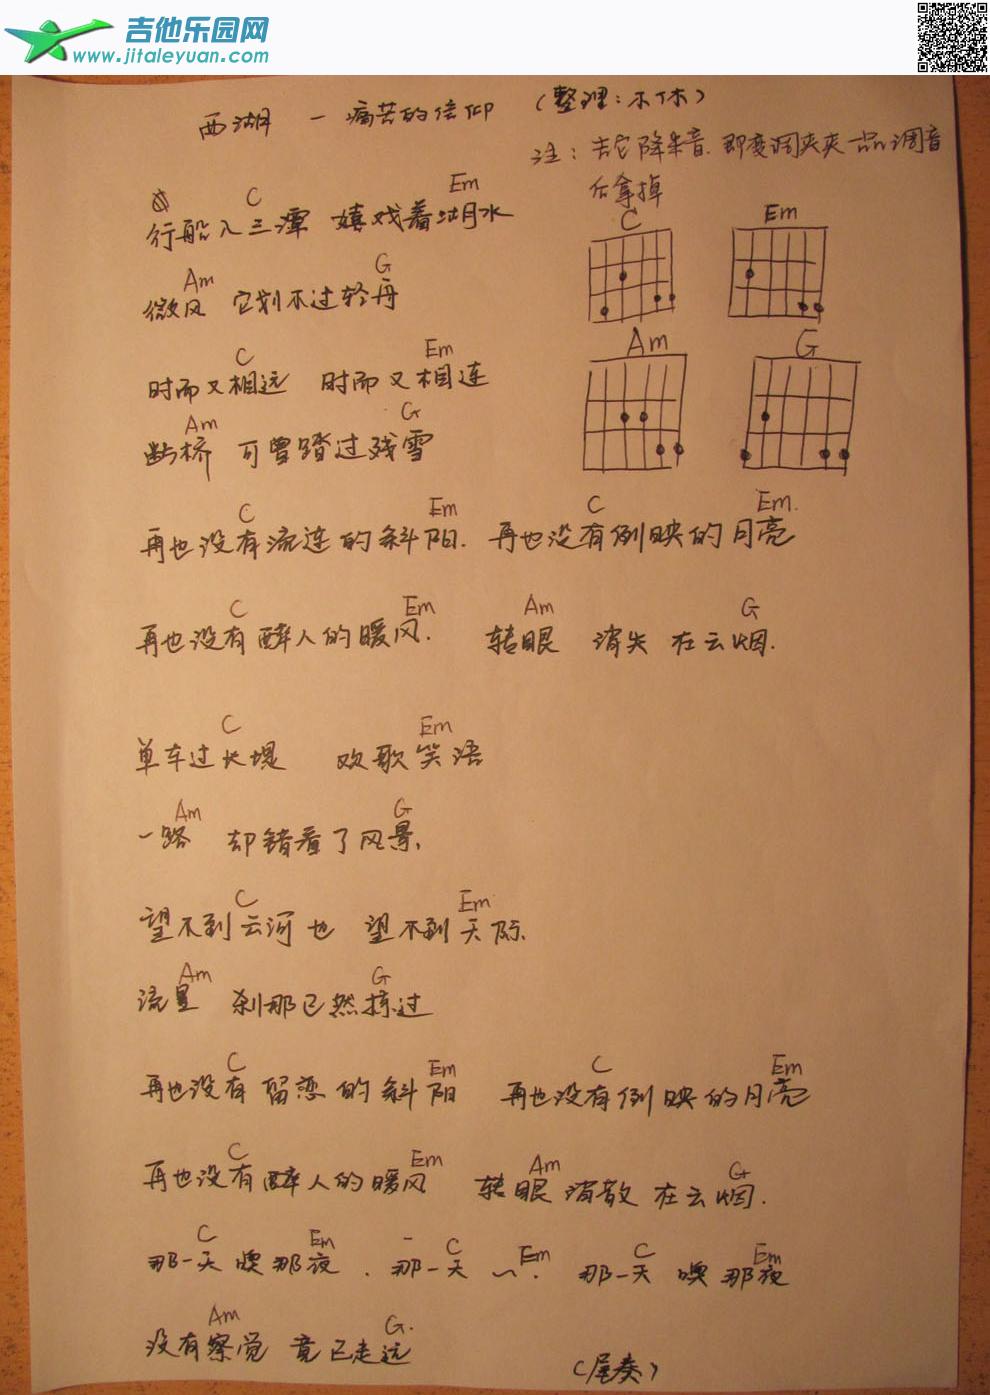 吉他乐园网
www.jitaleyuan.com
西湖 — 痛苦的信仰 (整理：木休)
注：吉它降半音.即变调夹夹一品调音
后拿掉
C Em
行船入三潭 嬉戏着湖水
C Em
Am G
微风 它划不过轻舟
Am G
C Em
时而又相远 时而又相连
Am G
断桥 可曾踏过残雪
C Em C Em.
再也没有流连的斜阳. 再也没有倒映的月亮
C Em Am G
再也没有醉人的暖风. 转眼 消失 在云烟.
C Em
单车过长堤 欢歌笑语
Am G
一路 却错看了风景,
C Em
望不到云河也 望不到天际.
Am G
流星 刹那已然掠过
C Em C Em
再也没有留恋的斜阳 再也没有倒映的月亮
C Em Am G
再也没有醉人的暖风 转眼消散 在云烟.
C Em C Em C Em
那一天 噢那夜. 那一天 ~. 那一天 噢 那夜
Am G.
没有察觉 竟已走远
(尾奏)